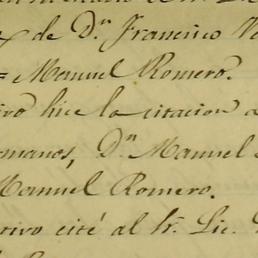 de Dn Francisco
= Manuel Romero.
hice la citacion a
manos, Dn Manuel
Manuel Romero.
rivo cité al Sr. Lic.